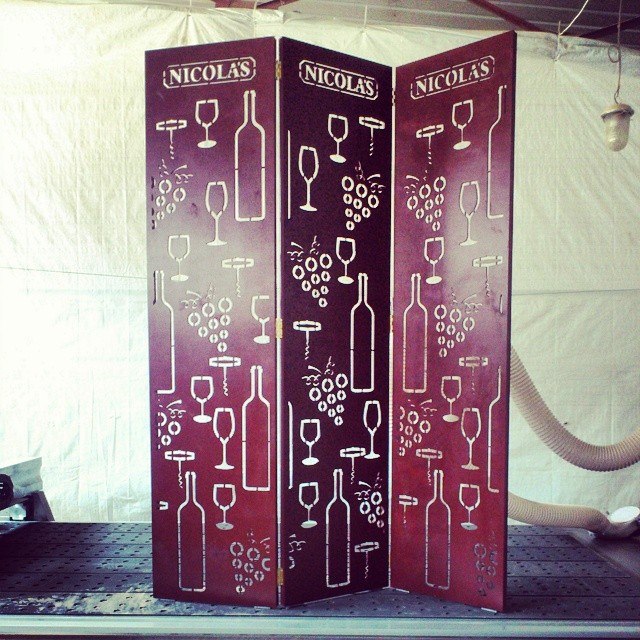 NICOLAS
NICOLAS
NICOLAS